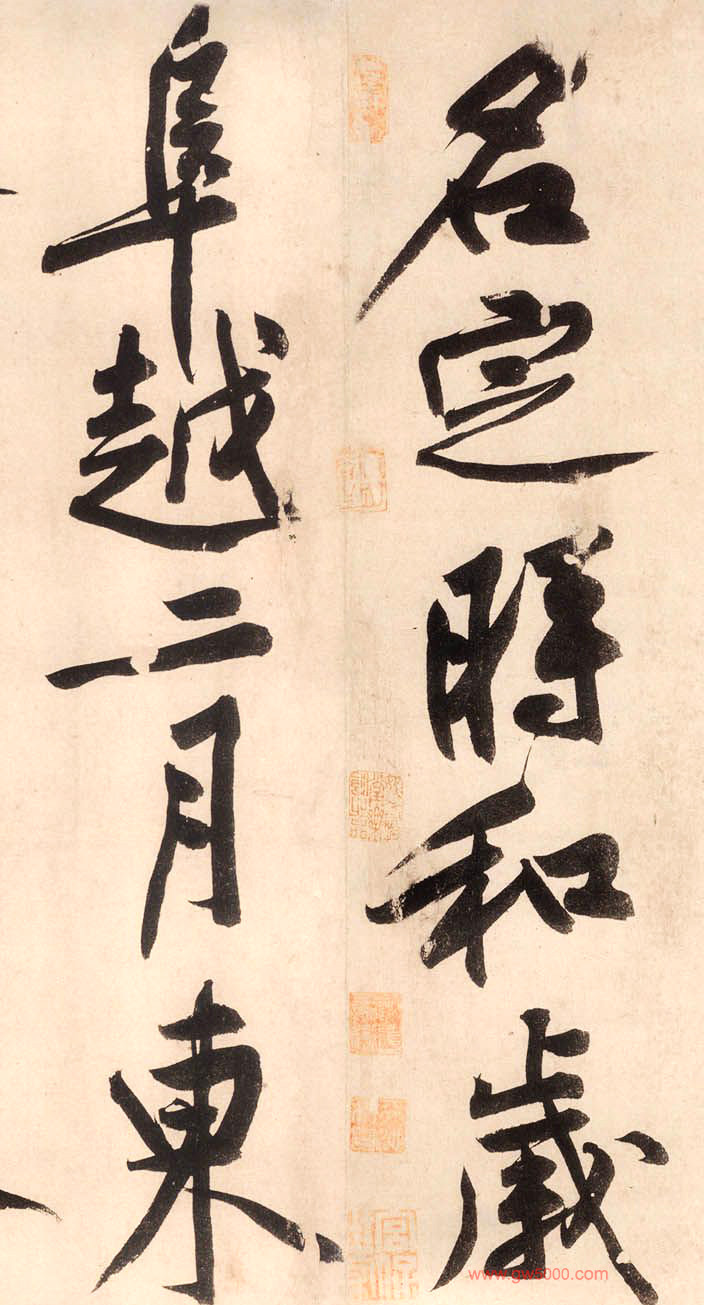 名定時和歲
阜越二月東
www.gw5000.com